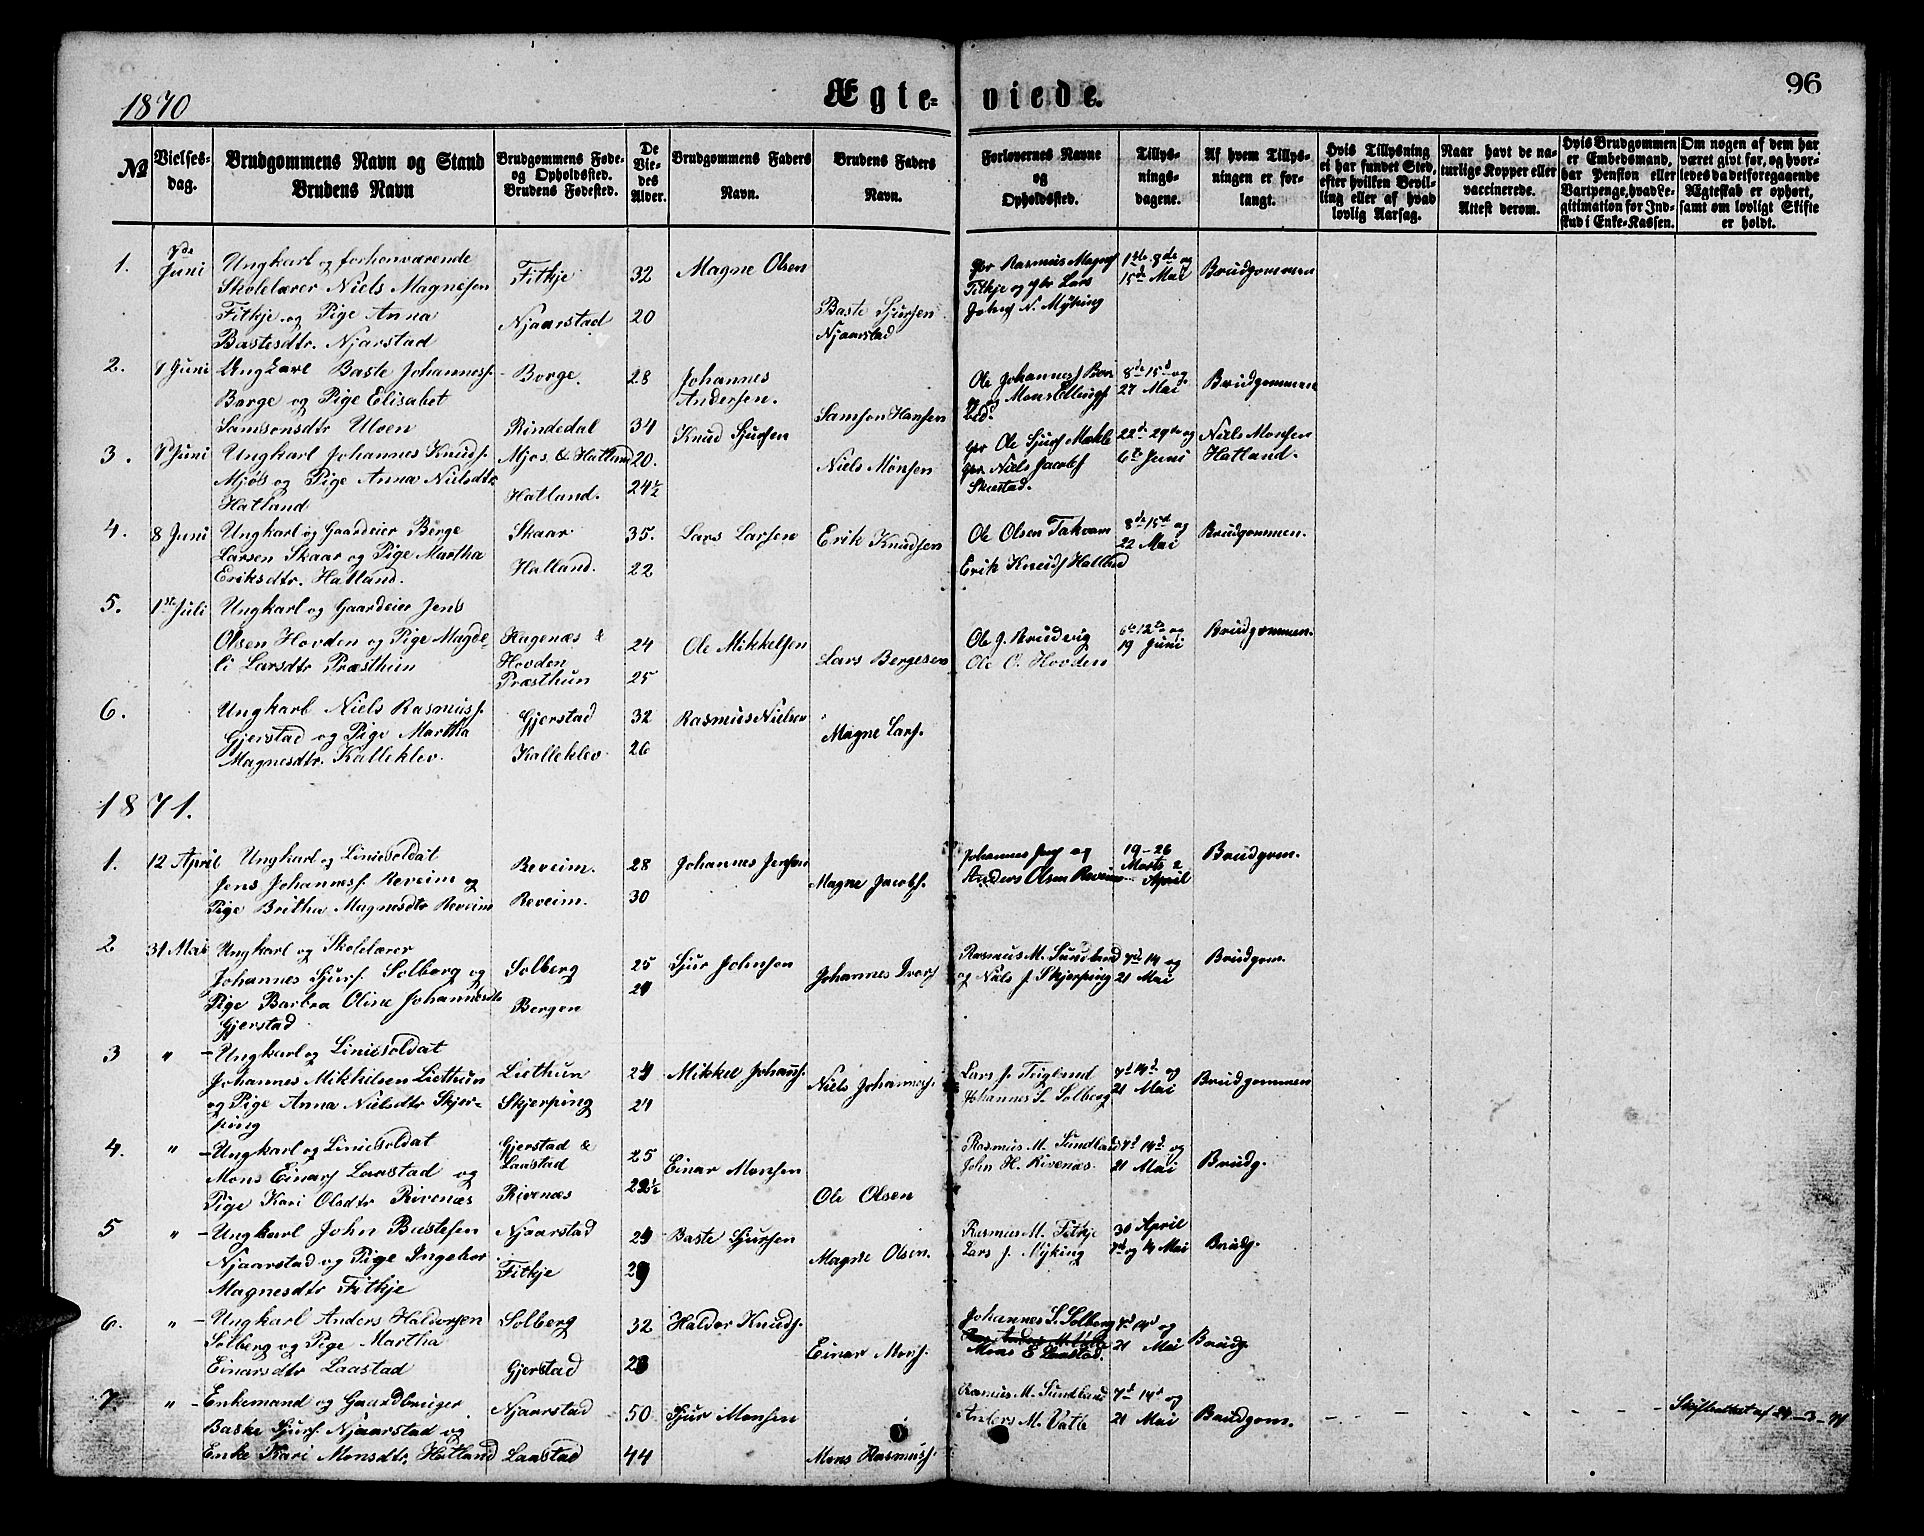 96
1870
Ægte- viede.
№
Vielses-
dag.
Brudgommens Navn og Stand
Brudens Navn
Brudgommens Føde-
og Opholdssted.
Brudens Fødested.
De
Vie-
des
Alder.
Brudgommens Faders
Navn.
Brudens Faders
Navn.
Forlovernes Navne
og
Opholdssted.
Tillys-
nings-
dagene.
Af hvem Tillys-
ningen er for-
langt.
Hvis Tillysning
ei har fundet Sted,
efter hvilken Bevil-
ling eller af hvad
lovlig Aarsag.
Naar havt de na-
turlige Kopper eller
vaccinerede.
Attest derom.
Hvis Brudgommen
er Embedsmand,
har Pension eller
Vartpenge, hvad Le-
gitimation for Ind-
skud i Enke-Kassen.
Om nogen af dem har
været givt før, og hvor-
ledes da det foregaaende
Ægteskab er ophørt,
samt om lovligt Skifte
er holdt.
1. 7de Juni
Ungkarl og forhenværende
Skolelærer Niels Magnesen
Fitkje og Pige Anna
Bastesdtr. Njarstad
Fitkje
Njaarstad
32
20
Magne Olsen
Baste Sjursen
Njaarstad
Gbr Rasmus Magns
Fitkje og gbr Lars
Johns N. Myking
1ste 8de og
15de Mai
Brudgommen
2. 7 Juni
Ungkarl Baste Johannesf.
Borge og Pige Elisabet
Samsonsdtr Ulven
Borge.
Rindedal
28
34
Johannes
Andersen.
Samson Hansen
Ole Johannesf Bor
ge og Mons Ellingf
ibd.
8de 15d og
27 Mai
Brudgommen
3. 7 Juni
Ungkarl Johannes Knudsf.
Mjøs og Pige Anna Nielsdtr
Hatland
Mjøs & Hatland
Hatland.
20.
24½
Knud Sjursen
Niels Monsen
gbr Ole Sjurf Mæhle
gbr Niels Jacobf
Skæstad.
22de 29de og
6te Juni
Niels Monsen
Hatland.
4. 8 Juni
Ungkarl og Gaardeier Berge
Larsen Skaar og Pige Martha
Eriksdtr. Hatland.
Skaar
Hatland.
35.
22
Lars Larsen
Erik Knudsen
Ole Olsen Takvam
Erik Knudsf Hatland
8de 15d og
22 Mai
Brudgommen.
5. 1ste Juli
Ungkarl og Gaardeier Jens
Olsen Hovden og Pige Magde-
li Larsdtr Præsthun
Hagenæs &
Hovden
Præsthun
24
25
Ole Mikkelsen
Lars Bergesen
Ole J. Bruvig
Ole O. Hovden
6te 12te og
19 Juni
Brudgommen.
6.
Ungkarl Niels Rasmusf.
Gjerstad og Pige Martha
Magnesdtr. Kalleklev.
Gjerstad
Kalleklev.
32
26
Rasmus Nielsen
Magne Larsf.
1871.
1. 12 April
Ungkarl og Liniesoldat
Jens Johannesf. Reveim og
Pige Britha Magnesdtr Reveim
Reveim.
Reveim.
28
30
Johannes Jensen
Magne Jacobf.
Johannes Jensf og
Anders Olsen Reveim
19-26
Marts 2
April
Brudgom.
2 31 Mai
Ungkarl og Skolelærer
Johannes Sjursf. Solberg og
Pige Barbra Oline Johannesdtr
Gjerstad
Solberg
Bergen
25
24
Sjur Johnsen
Johannes Ivarsf
Rasmus M. Sundland
og Niels J. Skjerping
7de 14 og
21 Mai
Brudgom.
3 " -
Ungkarl og Liniesoldat
Johannes Mikkelsen Liethun
og Pige Anna Nielsdtr Skjer-
ping
Liethun
Skjerping
24
24
Mikkel Johansf.
Niels Johannesf.
Lars J. Teigland
Johannes S. Solberg
7d 14d. og
21 Mai
Brudgommen
4. " -
Ungkarl og Liniesoldat
Mons Einarsf Laastad og
Pige Kari Olsdtr Rivenæs
Gjerstad &
Laastad
Rivenæs
25
22½
Einar Monsen
Ole Olsen
Rasmus M. Sundland
John H. Rivenæs.
7d 14d. og
21 Mai
Brudg.
5 " -
Ungkarl John Bastesen
Njaarstad og Pige Ingebor
Magnesdtr Fitkje
Njaarstad
Fitkje
24
29
Baste Sjursen
Magne Olsen.
Rasmus M. Fitkje
Lars J. Myking
30 April
7d og 14 Mai
Brudg.
6. " -
Ungkarl Anders Haldorsen
Solberg og Pige Martha
Einarsdtr Laastad
Solberg
Gjerstad
32
23
Haldor Knudsf.
Einar Monsf.
Johannes S. Solberg
Mons E Laastad.
7d 14d og
21 Mai
Brudg.
7. " -
Enkemand og Gaardbruger
Baste Sjursf. Njaarstad og
Enke Kari Monsdtr Hatland
Njaarstad
Laastad
50
44
Sjur Monsen
Mons Rasmusf.
Rasmus M. Sundland
Anders M. Vatle
7d 14d og
21 Mai
Brudgom.
- - - - - - - -
Skifteattest af 24-3-71